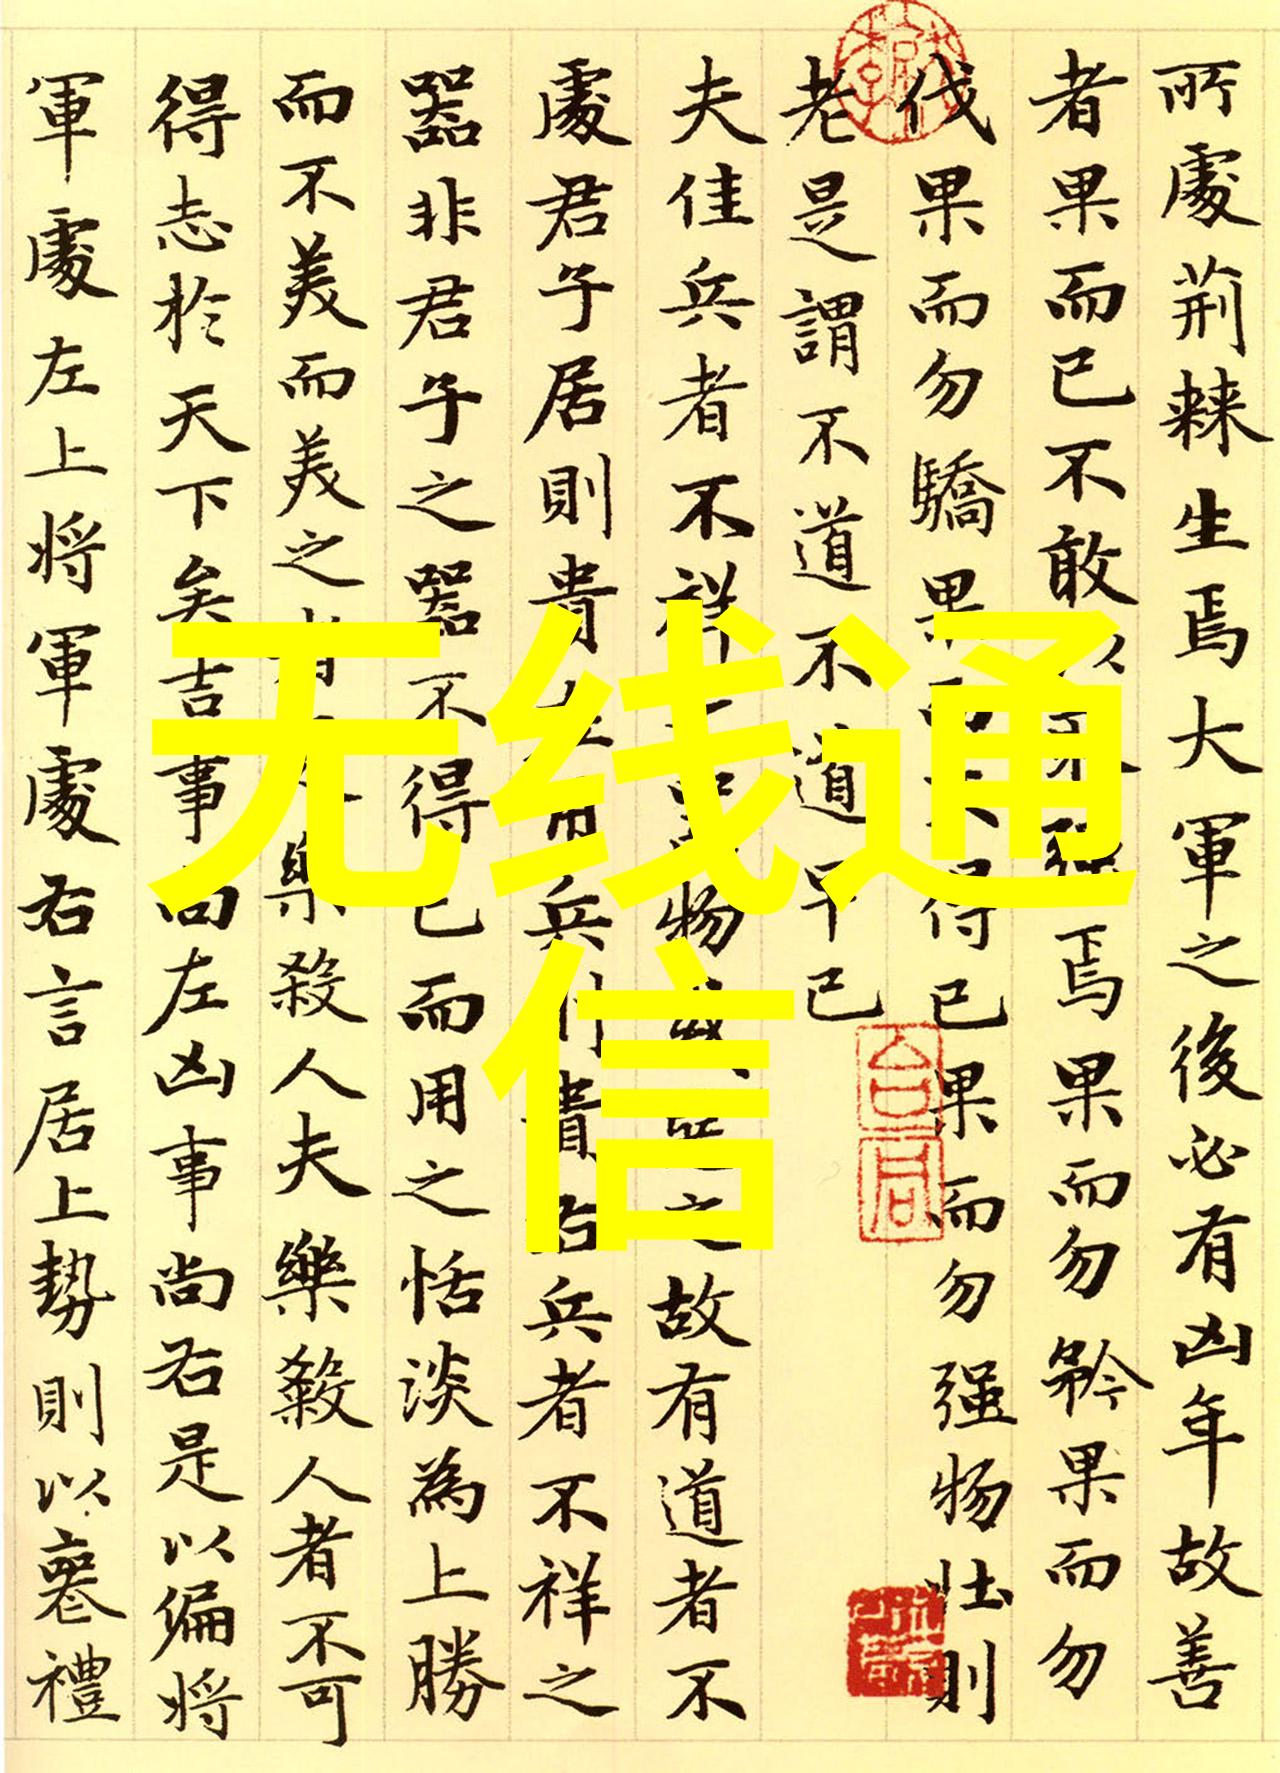 所處荊棘生焉大軍之後必有凶年故善
者果而已不敢以取強焉果而勿矜果而勿
伐果而勿驕果而不得已果而勿強物壯則
老是謂不道不道早已
夫佳兵者不祥之器物或惡之故有道者不
處君子居則貴左用兵則貴右兵者不祥之
器非君子之器不得已而用之恬淡為上勝
而不美而美之者是樂殺人夫樂殺人者不可
得志於天下矣吉事尚左凶事尚右是以偏將
軍處左上将軍處右言居上勢則以喪禮
无线通
信